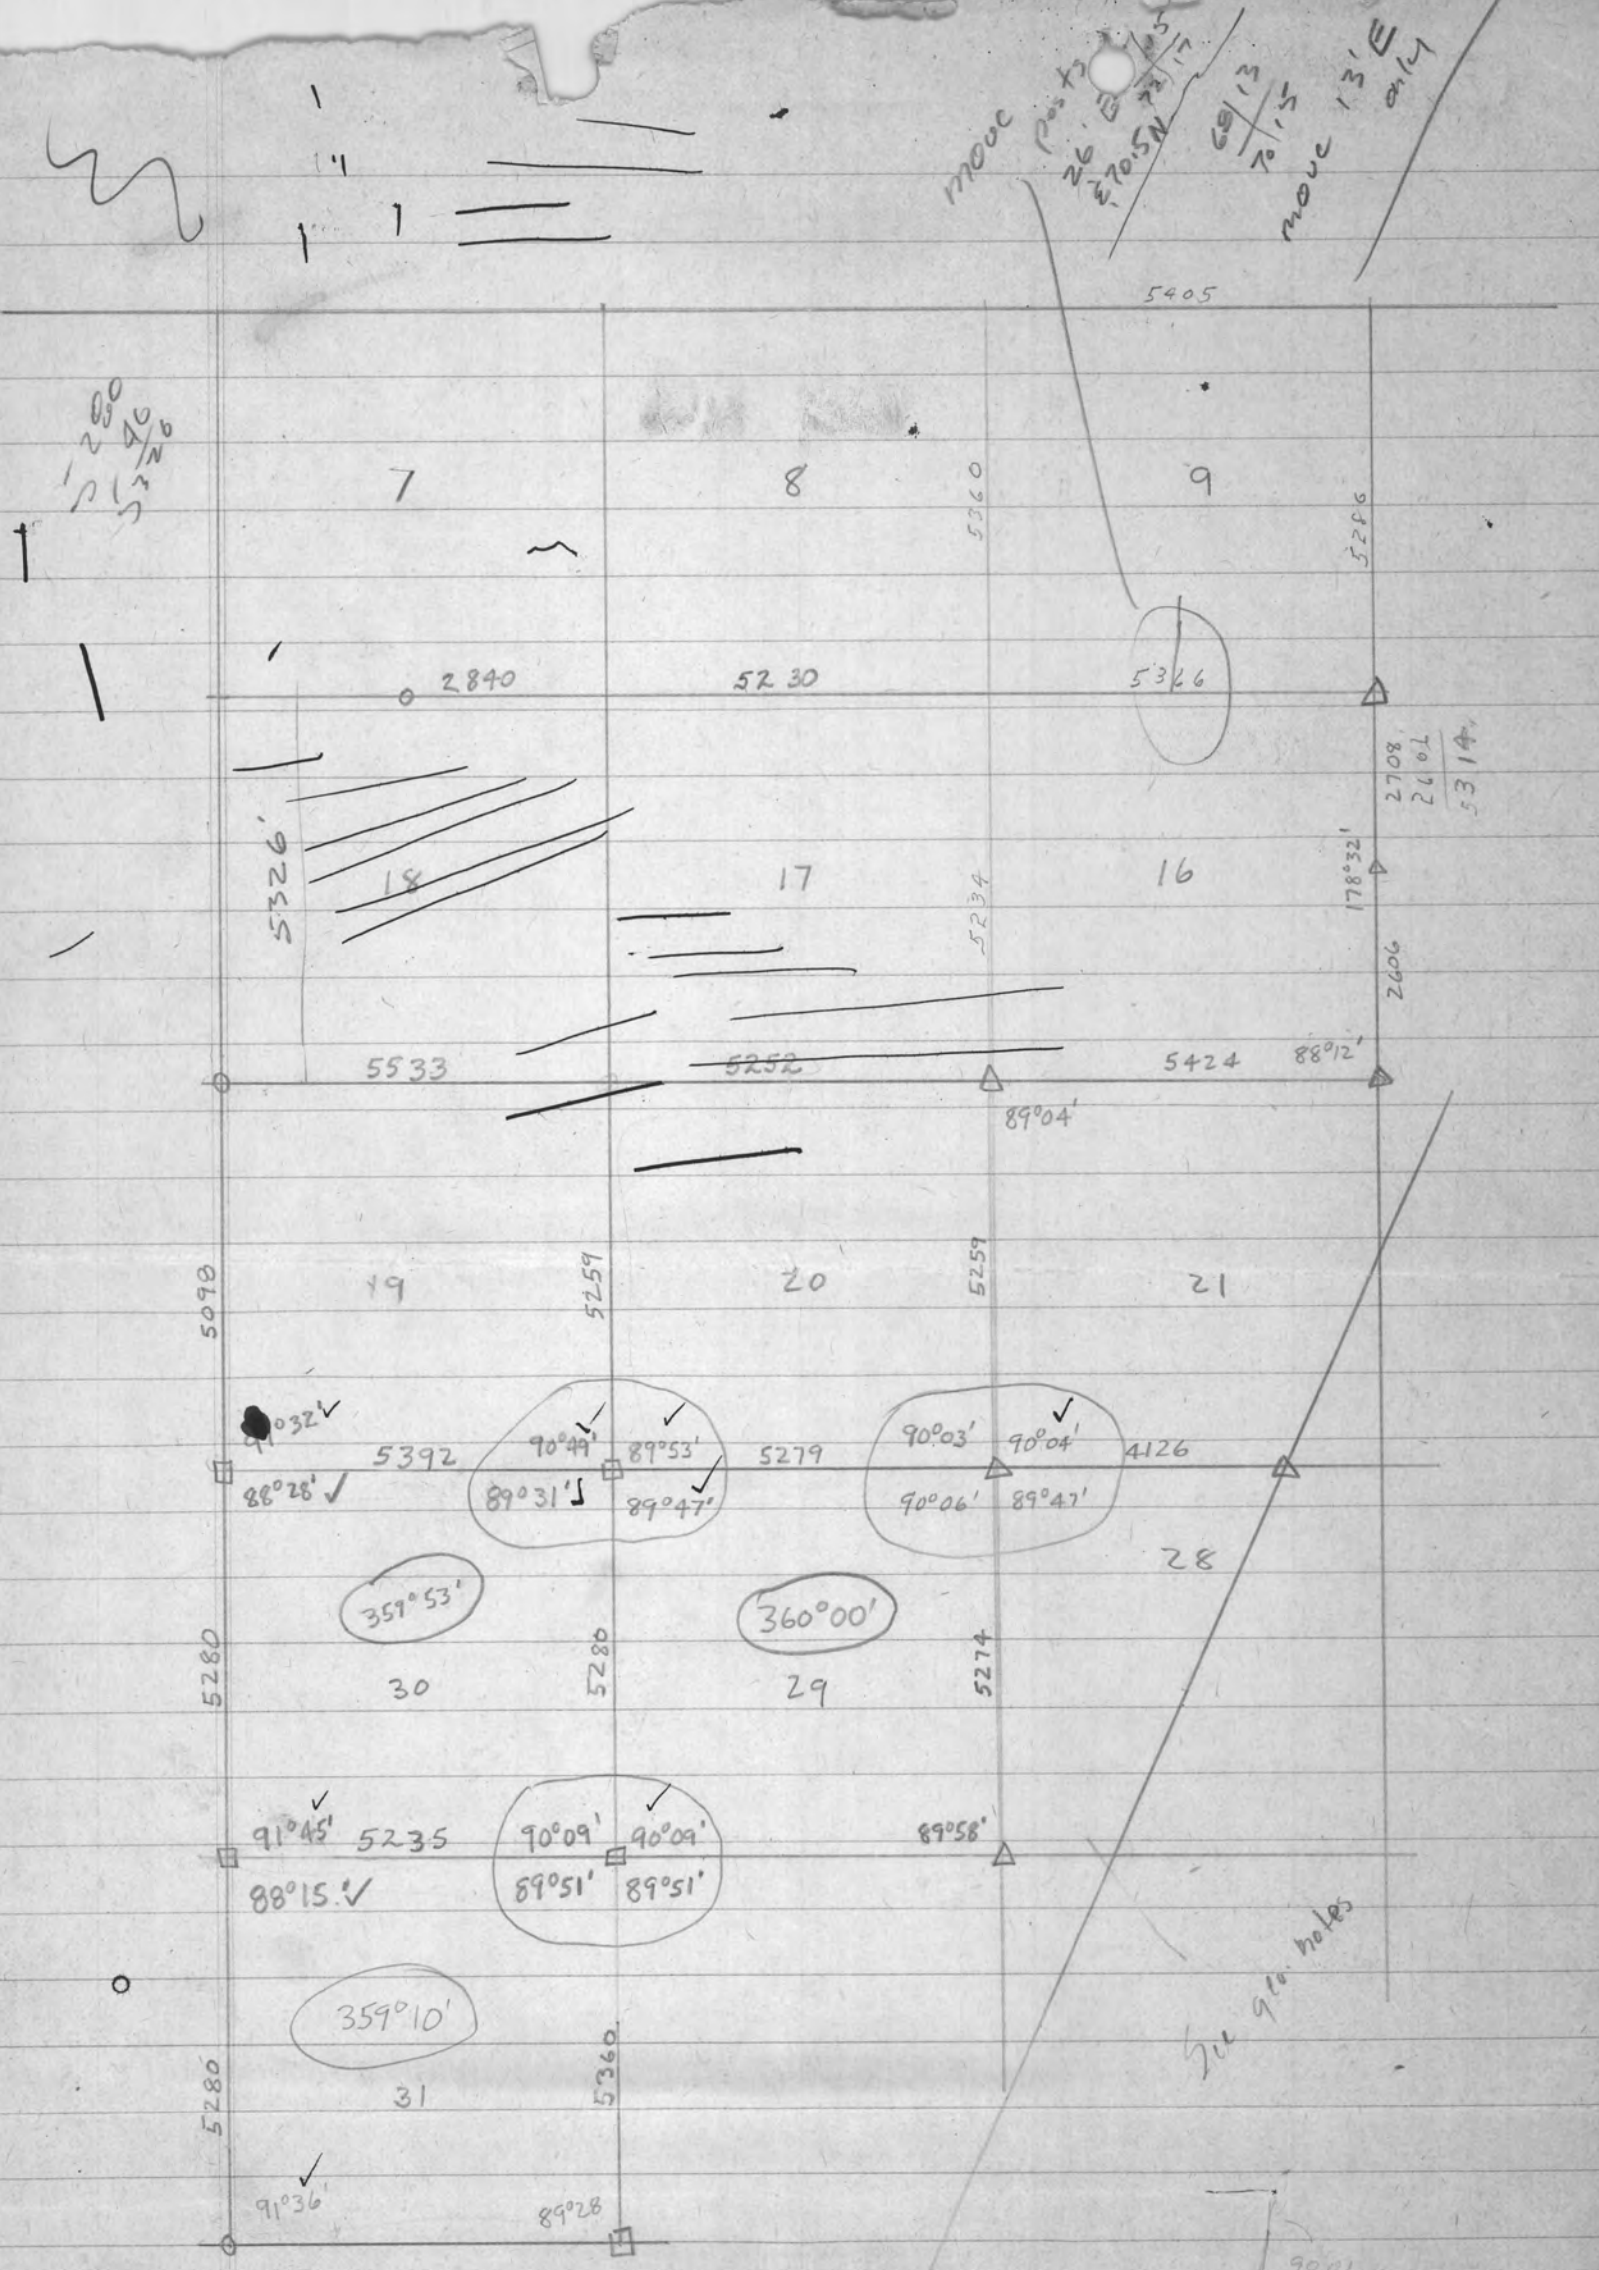 move posts
26' E
68/13
70/15
move 13' E
only
5405
5200
5326
7
8
9
5360
5286
2840
5230
5366
2708
5314
5326'
18
17
16
5234
178°32'
2606
5533
5252
5424
88°12'
89°04'
5098
19
5259
20
5259
21
91°32'
5392
90°49'
89°53'
5279
90°03'
90°04'
4126
88°28'
89°31'
89°47'
90°06'
89°47'
28
359°53'
360°00'
5280
30
5280
29
5274
91°45'
5235
90°09'
90°09'
89°58'
88°15'
89°51'
89°51'
See glo. notes
359°10'
5280
31
5360
91°36'
89°28